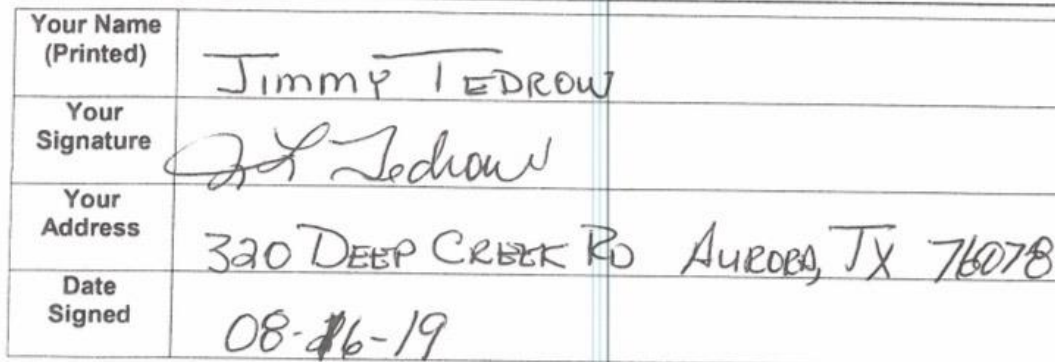 Your Name
(Printed)
Jimmy TEDROW
Your
Signature
J L Tedrow
Your
Address
320 DEEP CREEK RD AURORA, TX 76078
Date
Signed
08-16-19